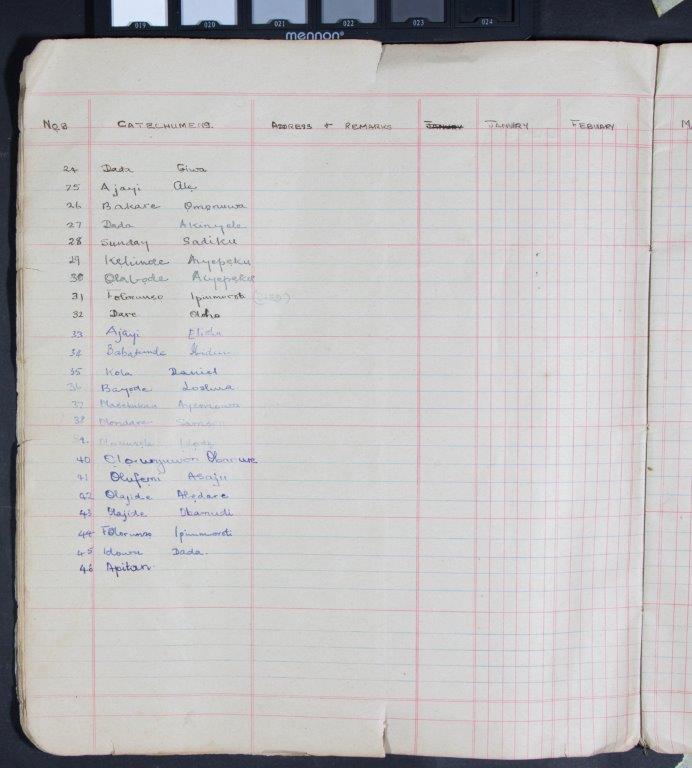 019 020 021 022 023 024
mennon®
Nos CATECHUMENS. ADDRESS + REMARKS JANUARY JANURY FEBUARY M
24 Dada Giwa
25 Ajayi Ale
26 Bakare Omonuwa
27 Dada Akinyele
28 Sunday Sadiku
29 Kehinde Ayepeku
30 Olabode Ayepeku
31 Folorunso Ipinmoroti
32 Dare Oloko
33 Ajayi
34 Babatunde
35 Kola Daniel
36 Bayode Joshua
37
38
40
41 Olufemi Asaju
42 Olajide Aledare
43 Olajide Obamudi
44 Folorunso Ipinmoroti
45 Idowu Dada.
46 Apitan.